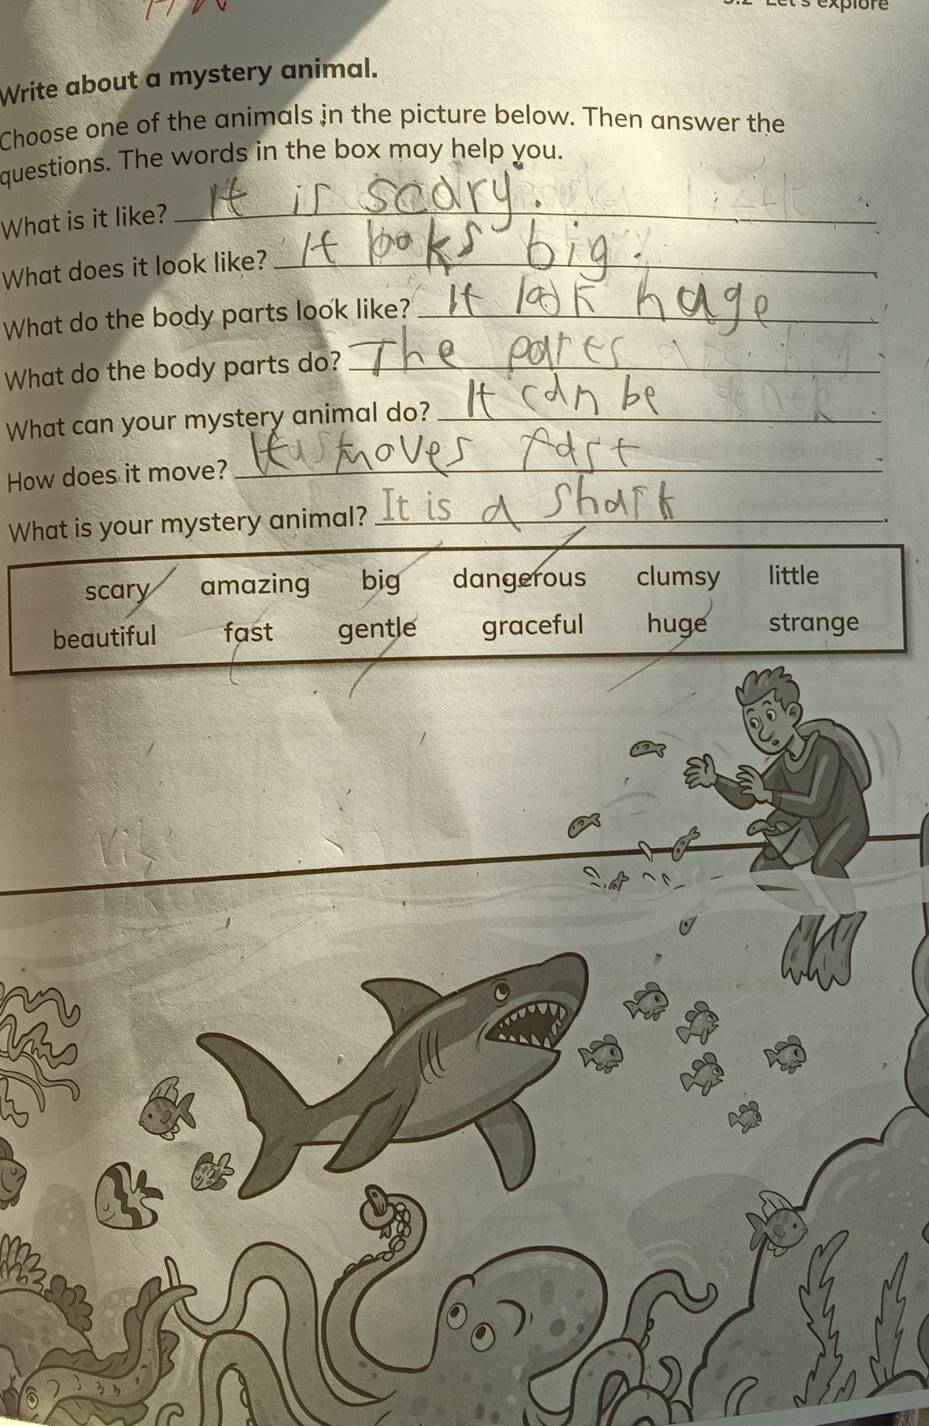 Let's explore
Write about a mystery animal.
Choose one of the animals in the picture below. Then answer the
questions. The words in the box may help you.
What is it like? It is scary.
What does it look like? It looks big.
What do the body parts look like? It look hage
What do the body parts do? The partes
What can your mystery animal do? It can be
How does it move? It moves fast
What is your mystery animal? It is a shark.
scary amazing big dangerous clumsy little
beautiful fast gentle graceful huge strange